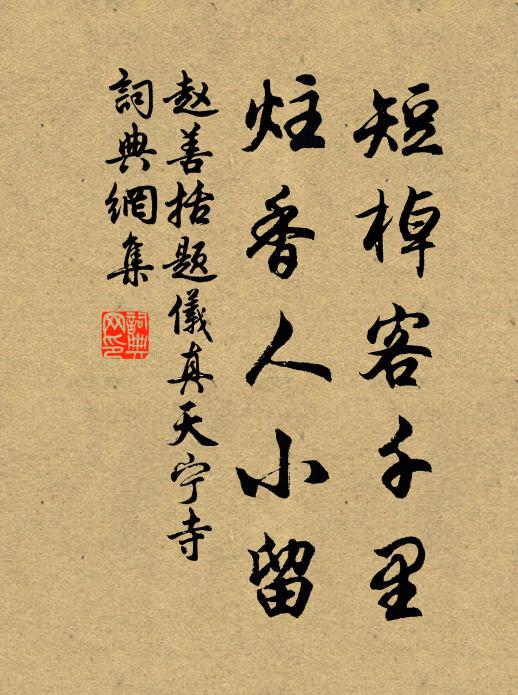 短棹客千里
炷香人小留
赵善括题儀真天宁寺
詞典網集
詞典網印